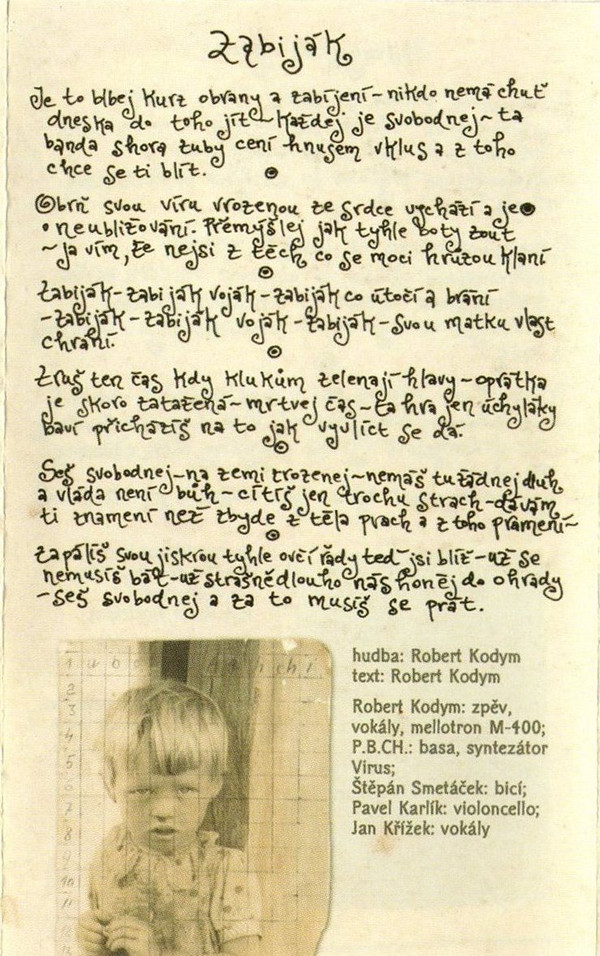 Zabiják
Je to blbej kurz obrany a zabíjení – nikdo nemá chuť
dneska do toho jít – každej je svobodnej – ta
banda shora zuby cení hnusem vklus a z toho
chce se ti blít.
Obrň svou víru vrozenou ze srdce vychází a je
neubližování. Přemýšlej jak tyhle boty zout
– ja vím, že nejsi z těch co se moci hrůzou klaní
zabiják – zabiják voják – zabiják co útočí a brání
– zabiják – zabiják voják – zabiják – svou matku vlast
chrání.
Zruš ten čas kdy klukům zelenají hlavy – oprátka
je skoro zatažená – mrtvej čas – ta hra jen úchyláky
baví přicházíš na to jak vyvlíct se dá.
Seš svobodnej – na zemi zrozenej – nemáš tu žádnej dluh
a vláda není bůh – cítíš jen trochu strach – dávám
ti znamení než zbyde z těla prach a z toho pramení –
zapálíš svou jiskrou tyhle ovčí řady teď jsi blíž – už se
nemusíš bát – už strašně dlouho nás honěj do ohrady
– seš svobodnej a za to musíš se prát.
hudba: Robert Kodym
text: Robert Kodym
Robert Kodym: zpěv,
vokály, mellotron M-400;
P.B.CH.: basa, syntezátor
Virus;
Štěpán Smetáček: bicí;
Pavel Karlík: violoncello;
Jan Křížek: vokály
1
2
3
4
5
6
7
8
9
10
11